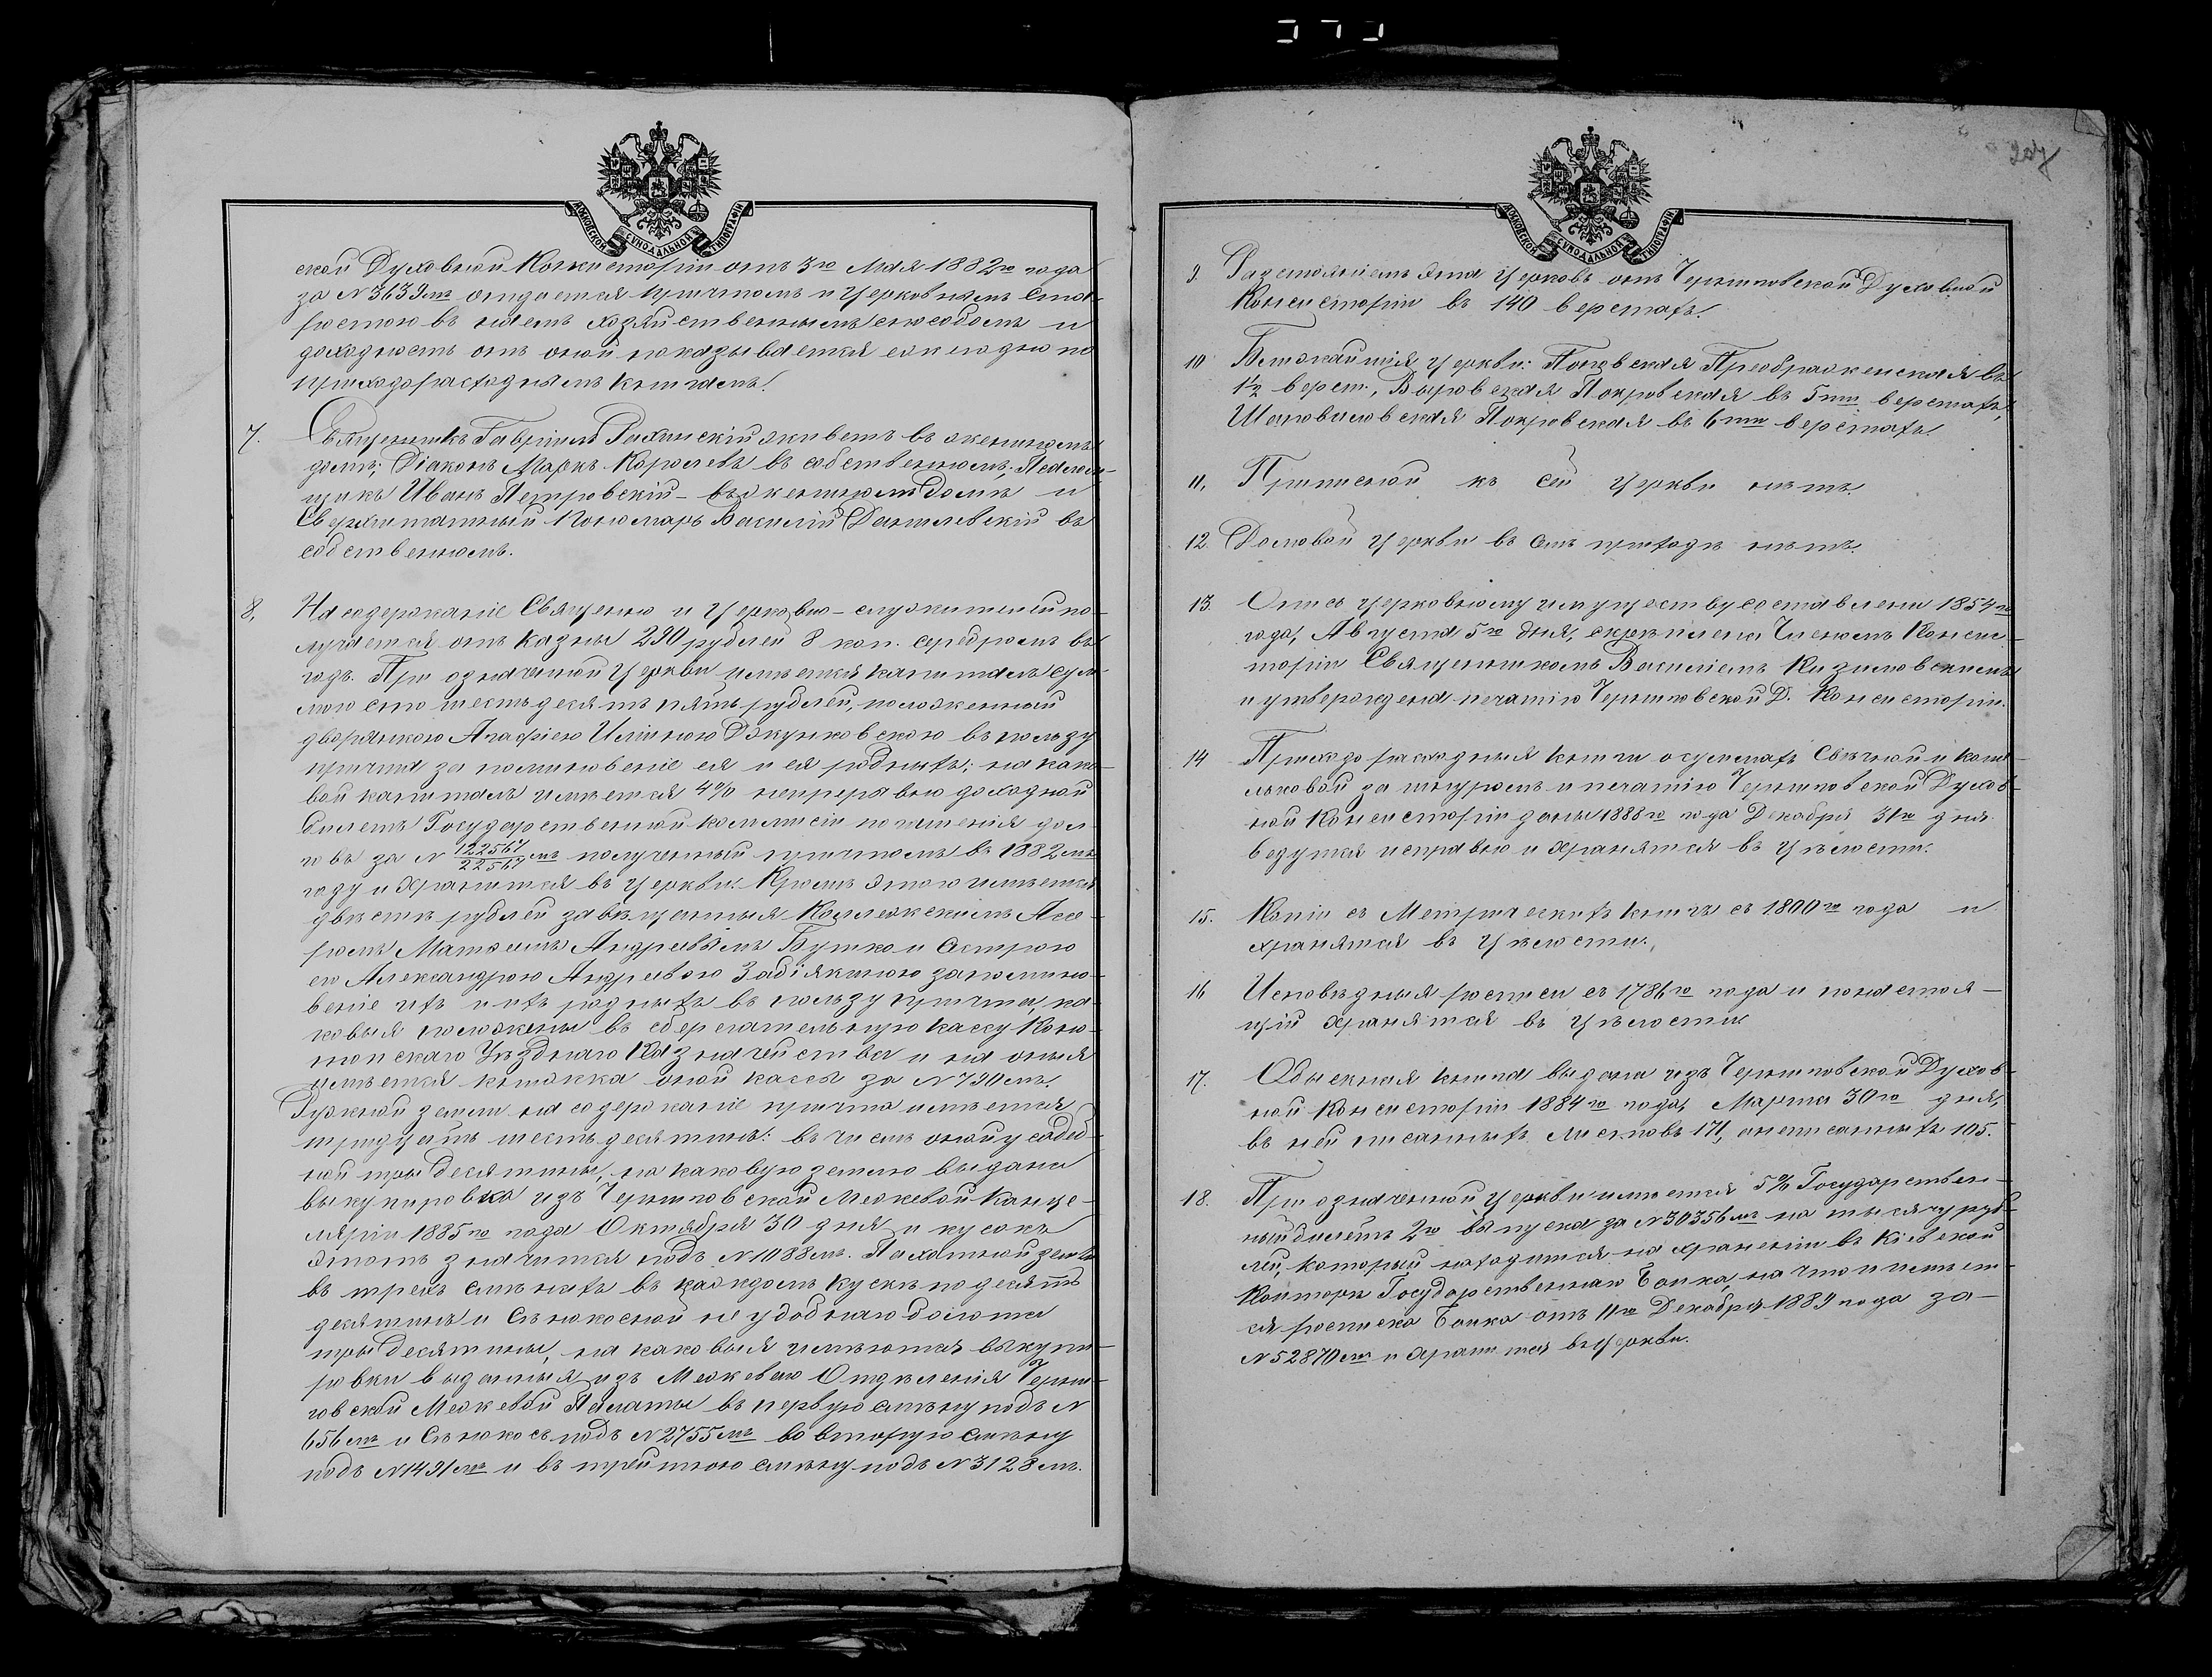 МОСКОВСКОЙ СѴНОДАЛЬНОЙ ТИПОГРАФІИ
ской Духовной Консисторіи отъ 3го Мая 1882го года
за №3639мъ отдается причтомъ и церковнымъ ста-
ростою въ наемъ хозяйственнымъ способомъ и
доходность отъ оной показывается ежегодно по
приходорасходнымъ книгамъ.
7. Священникъ Гавріилъ Рахинскій живетъ въ жениномъ
домѣ; Діаконъ Маркъ Королевъ въ собственномъ; Псалом-
щикъ Иванъ Петровскій - въ женином домѣ и
Сверхштатный Пономарь Василій Данилевскій въ
собственномъ.
8. На содержаніе Священно и Церковно-служителей по-
лучается отъ казны 290 рублей 8 коп. серебромъ въ
годъ. При означенной Церкви имѣется капиталъ сум-
мою сто шестьдесятъ пять рублей, положенный
дворянкою Агафіею Ильиною Джунковскою въ пользу
причта за поминовеніе ея и ея родныхъ; на како-
вой капиталъ имѣется 4% непрерывно доходной
билетъ Государственной коммисіи погашенія дол-
говъ за № 122567/22567мъ полученный причтомъ въ 1882мъ
году и хранится въ церкви. Кромѣ этого имѣется
двѣстѣ рублей завѣщанныя Коллежскимъ Ассе-
ромъ Матвѣемъ Андреевымъ Бутко и Сестрою
его Александрою Андреевою Забіякиною за помино-
веніе ихъ и ихъ родныхъ въ пользу причта, ка-
ковыя положены въ сберегательную кассу Коно-
топскаго Уѣзднаго Казначейства и на оныя
имѣется книжка оной кассы за №790мъ.
Ружной земли на содержаніе причта имѣется
тридцать шесть десятинъ: въ числѣ оной усадеб-
ной три десятины, на каковую землю выдана
выкупировка изъ Черниговской Межевой Канце-
ляріи 1885го года Октября 30 дня и кусокъ
этотъ значится подъ №1088мъ. Пахатной земли
въ трехъ смѣнахъ въ каждомъ кускѣ по десять
десятинъ и Сѣнокосной неудобнаго болота
три десятины, на каковыя имѣются выкупи-
ровки выданныя изъ Межеваго Отдѣленія Черни-
говской Межевой Палаты въ первую смѣну подъ №
656мъ и Сѣнокосъ подъ №2755мъ во вторую смѣну
подъ №1491мъ и въ третью смѣну подъ №3128мъ.
207
МОСКОВСКОЙ СѴНОДАЛЬНОЙ ТИПОГРАФІИ
9. Разстояніемъ эта Церковь отъ Черниговской Духовной
Консисторіи въ 140 верстахъ.
10 Ближайшія Церкви: Поповская Преображенская въ
1½ верст., Выровская Покровская въ 5ти верстахъ,
Шаповаловская Покровская въ 6ти верстахъ.
11. Приписной къ сей Церкви нѣтъ.
12. Домовой Церкви въ семъ приходѣ нѣтъ.
13. Опись церковному имуществу составлена 1854го
года, Августа 5го дня, скрѣплена Членомъ Консис-
торіи Священникомъ Василіемъ
и утверждена печатію Черниговской Д. Консисторіи.
14 Приходорасходныя книги о суммахъ Свѣчной и коше-
льковой за шнуромъ и печатію Черниговской Духов-
ной Консисторіи даны 1888го года Декабря 31го дня
ведутся исправно и хранятся въ цѣлости.
15. Копіи съ Метрическихъ книгъ съ 1800го года и
хранятся въ цѣлости.
16 Исповѣдныя росписи съ 1786го года и по настоя-
щій хранятся въ цѣлости.
17. Обыскная книга выдана изъ Черниговской Духов-
ной Консисторіи 1884го года, Марта 30го дня,
въ ней писанныхъ листовъ 171, а неписанныхъ 105.
18. При означенной Церкви имѣется 5% Государствен-
ный билетъ 2го выпуска за №30356мъ на тысячу руб-
лей, который находится на храненіи въ Кіевской
Конторѣ Государственнаго Банка, на что и имѣет-
ся росписка Банка отъ 11го Декабря 1889 года за-
№52870мъ и хранится въ Церкви.